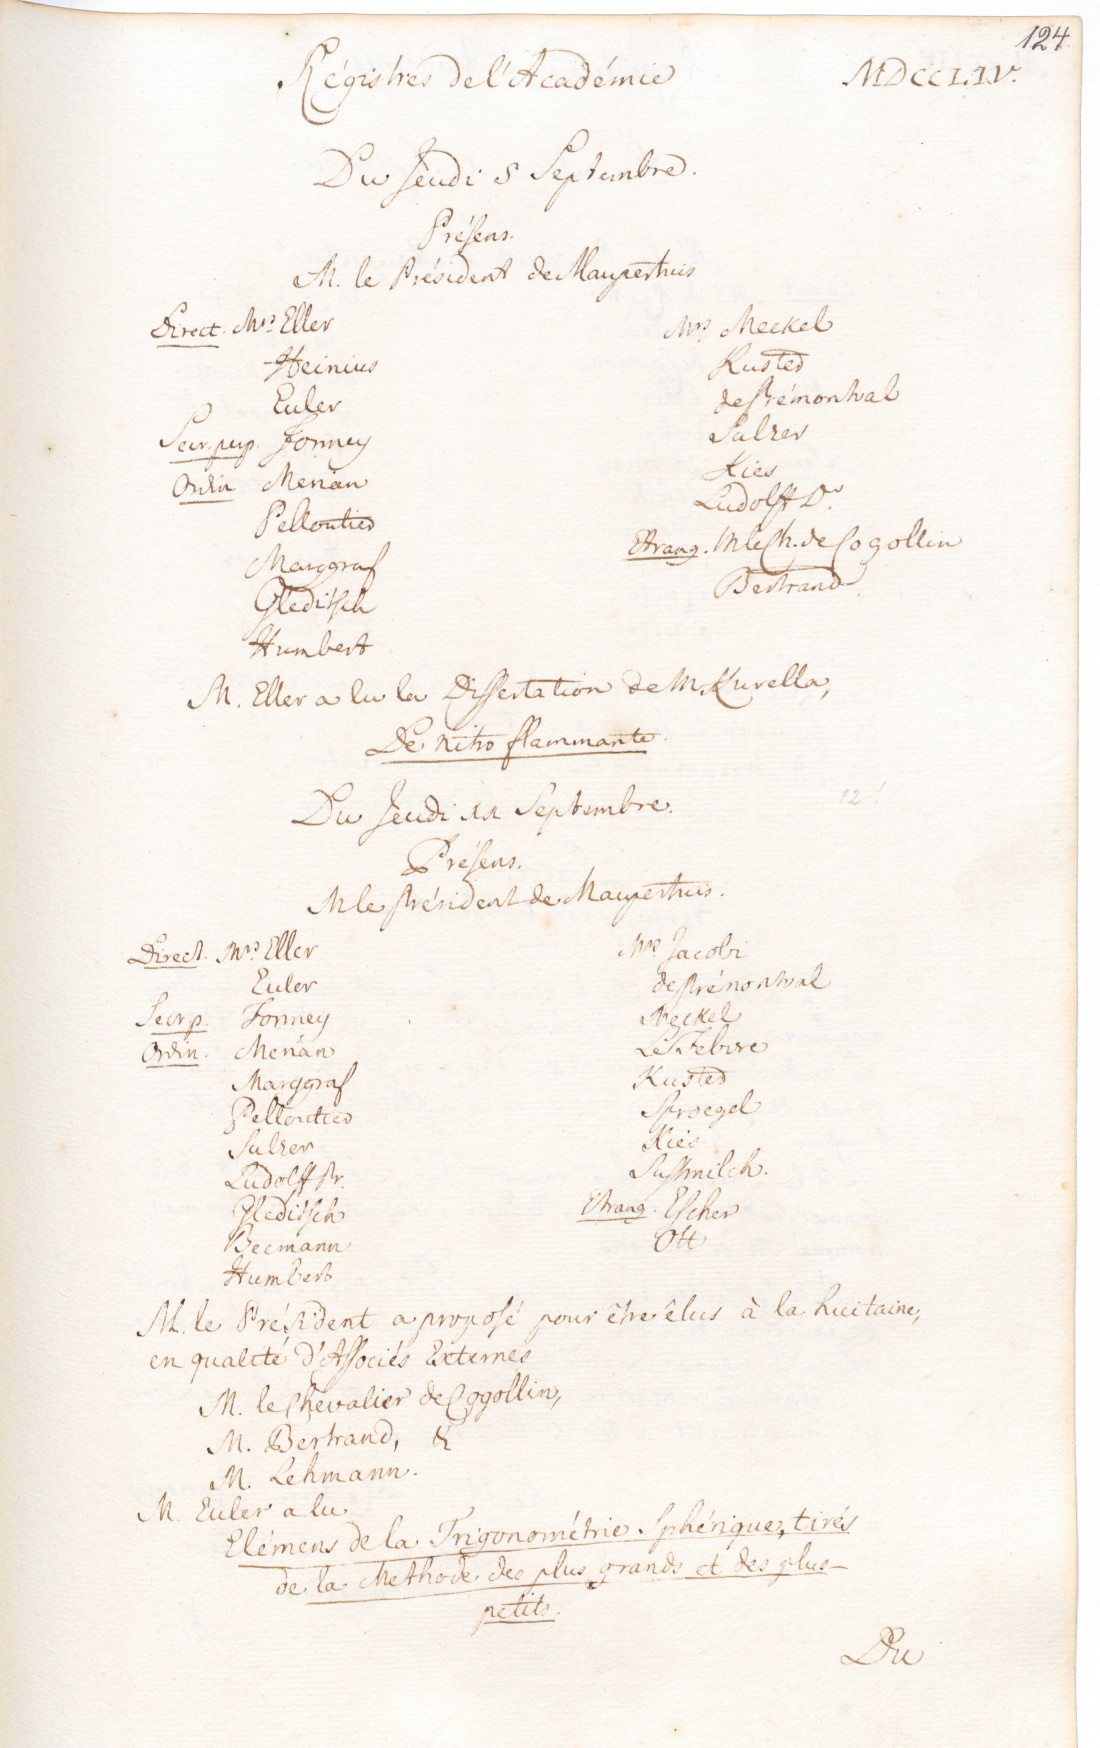 124.
Régistres de l'Académie MDCCLIV.
Du Jeudi 5 Septembre.
Présens.
M. le Président de Maupertuis
Direct. Mrs Eller
Heinius
Euler
Secr. perp. Formey
Ordin. Merian
Pelloutier
Marggraf
Gleditsch
Humbert
Mrs Meckel
Kusted
de Prémontval
Sulzer
Kies
Ludolff Dr
Etrang. M le Ch. de Cogollin
Bertrand
M. Eller a lu la Dissertation de M. Kurella,
De nitro flammante.
Du Jeudi 11 Septembre. 12!
Présens.
M le Président de Maupertuis.
Direct. Mrs Eller
Euler
Secr p. Formey
Ordin. Merian
Marggraf
Pelloutier
Sulzer
Ludolff Pr.
Gleditsch
Becmann
Humbert
Mrs Jacobi
de Prémontval
Meckel
Le Febvre
Kusted
Sproegel
Kies
Sussmilch.
Etrang. Escher
Ott
M. le Président a proposé pour être élus à la huitaine,
en qualité d'Associés Externes
M. le Chevalier de Cogollin,
M. Bertrand, &
M. Lehmann.
M. Euler a lu
Elémens de la Trigonométrie Sphérique, tirés
de la Methode des plus grands et des plus
petits.
Du